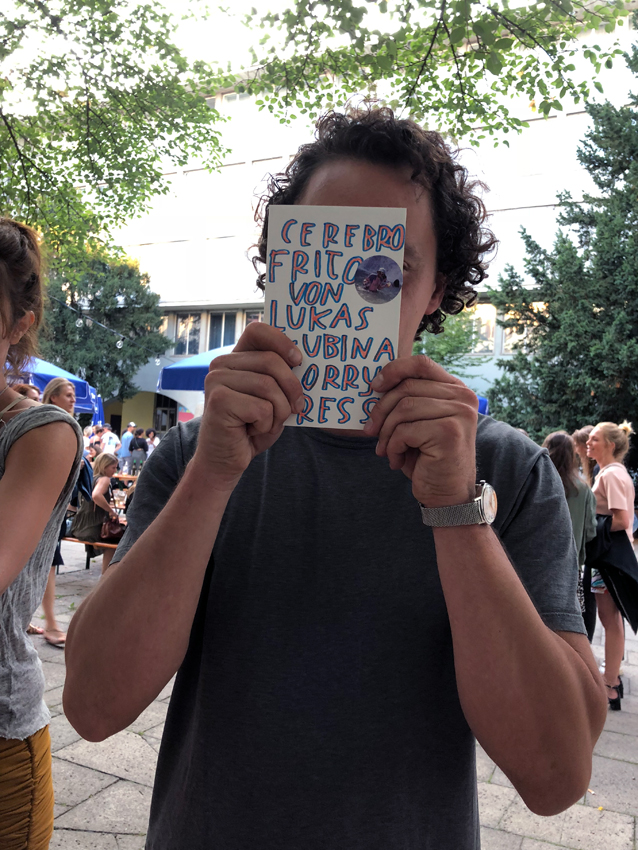 CEREBRO
FRITO
VON
LUKAS
UBINA
ORRY
RESS